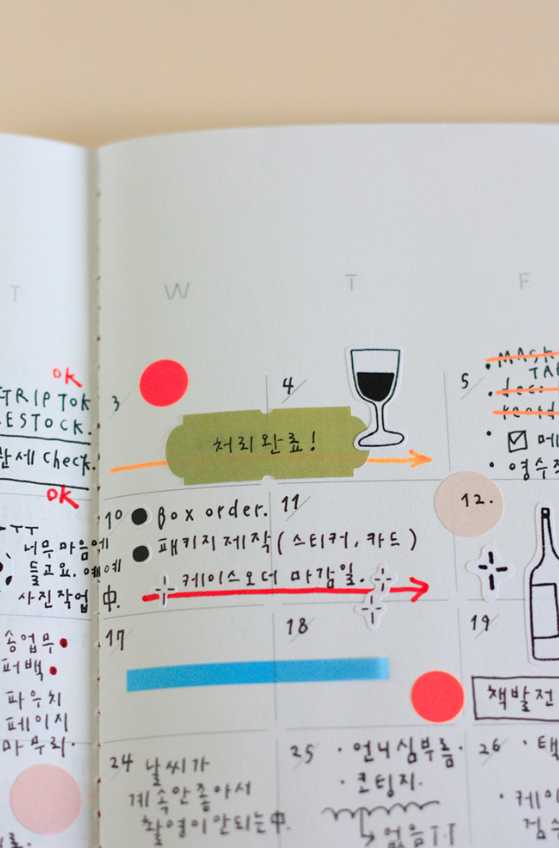 T
W
T
F
OK
3
4
5
TRIP TOK
ESTOCK.
세 Check.
처리완료!
MASK
TA
OK
10
Box order.
11
12.
패키지제작(스티커, 카드)
케이스오더 마감일.
ㅜㅜ
너무마음에
들고요. 예예
사진작업 中.
17
18
19
송업무
퍼백
파우치
페이지
마무리.
책발전
24 날씨가
계속안좋아서
촬영이안되는中.
25 · 언니심부름.
· 코팅지.
없음ㅜㅜ
26 · 택
· 케이
검수